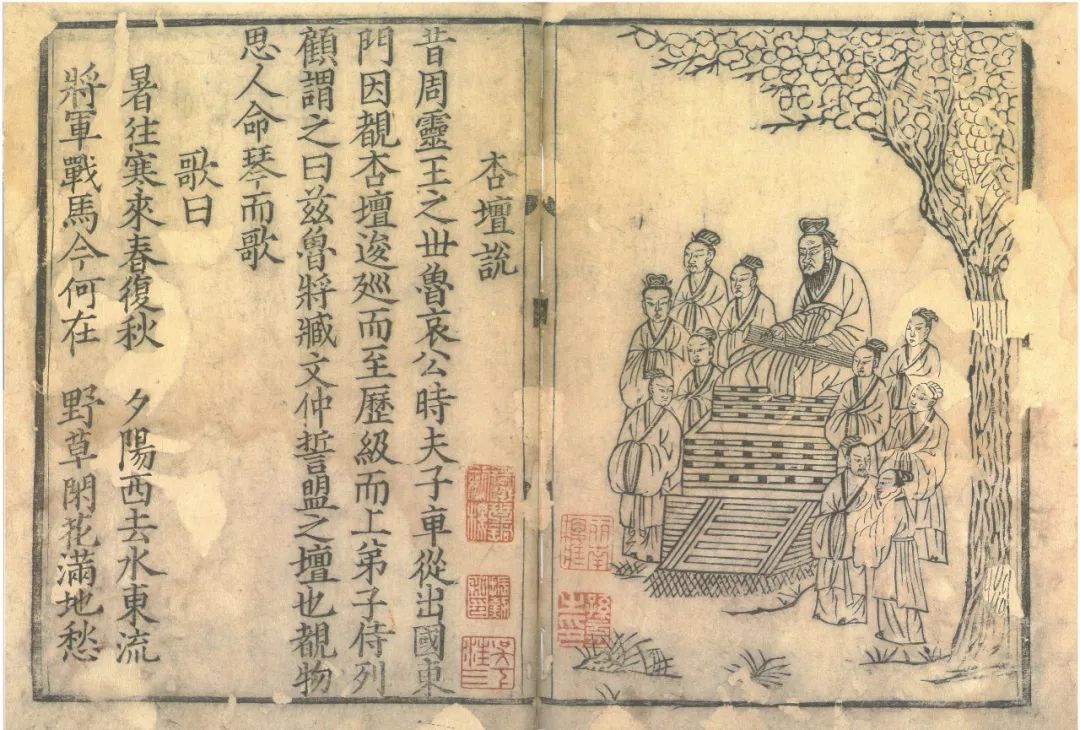 杏壇說
昔周靈王之世魯哀公時夫子車從出國東
門因覩杏壇逡廵而至歷級而上弟子侍列
顧謂之曰茲魯將臧文仲誓盟之壇也覩物
思人命琴而歌
歌曰
暑往寒來春復秋　夕陽西去水東流
將軍戰馬今何在　野草閑花滿地愁